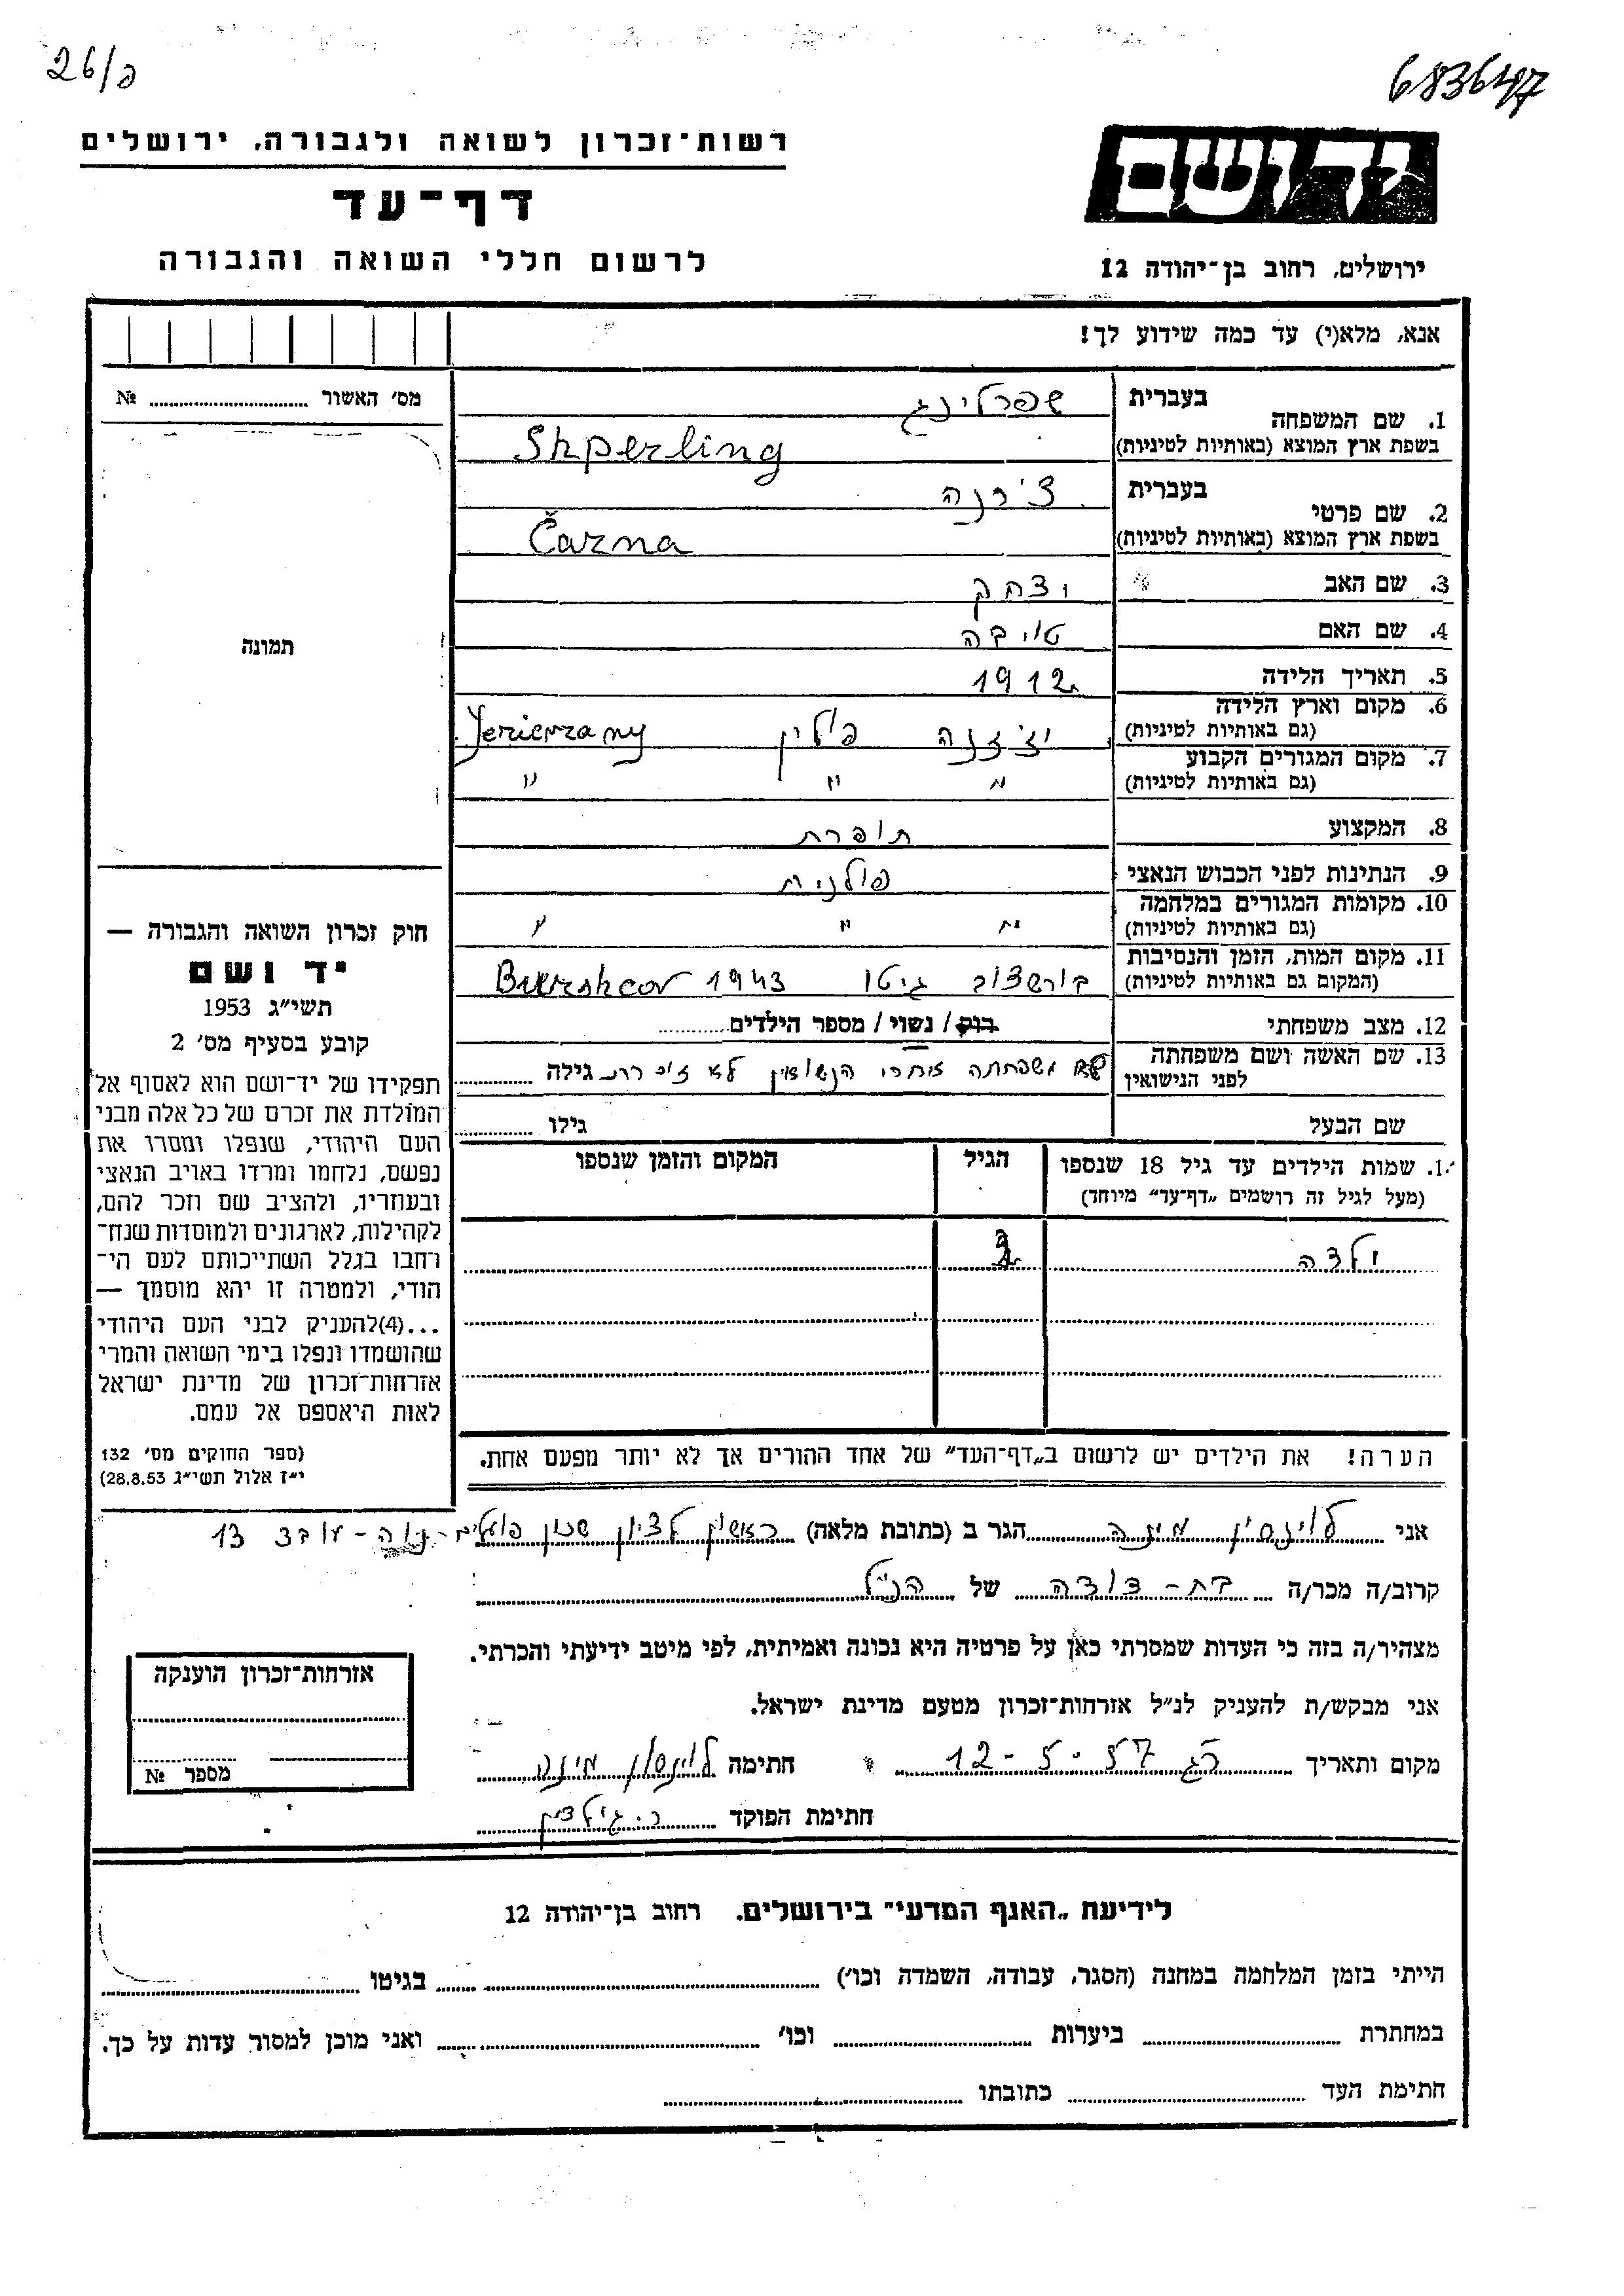 26/פ
683647
רשות־זכרון לשואה ולגבורה, ירושלים
דף־עד
לרשום חללי השואה והגבורה
יד ושם
ירושלים, רחוב בן־יהודה 12
אנא, מלא(י) עד כמה שידוע לך!
מס׳ האשור № ............
1. שם המשפחה בעברית שפרלינג
בשפת ארץ המוצא (באותיות לטיניות) Shperling
2. שם פרטי בעברית צ'רנה
בשפת ארץ המוצא (באותיות לטיניות) Čarna
3. שם האב יצחק
4. שם האם טויבה
5. תאריך הלידה 1912
6. מקום וארץ הלידה (גם באותיות לטיניות) פולין Jezierzany
7. מקום המגורים הקבוע (גם באותיות לטיניות) " " "
8. המקצוע תופרת
9. הנתינות לפני הכבוש הנאצי פולנית
10. מקומות המגורים במלחמה (גם באותיות לטיניות) " " "
11. מקום המות, הזמן והנסיבות (המקום גם באותיות לטיניות) בורשצוב גיטו 1943
12. מצב משפחתי רווק / נשוי / מספר הילדים............
13. שם האשה ושם משפחתה לפני הנישואין שם משפחתה אחרי הנשואין לא זוכרת גילה ............
שם הבעל גילו ............
תמונה
חוק זכרון השואה והגבורה —
יד ושם
תשי״ג 1953
קובע בסעיף מס׳ 2
תפקידו של יד־ושם הוא לאסוף אל
המולדת את זכרם של כל אלה מבני
העם היהודי, שנפלו ומסרו את
נפשם, נלחמו ומרדו באויב הנאצי
ובעוזריו, ולהציב שם וזכר להם,
לקהילות, לארגונים ולמוסדות שנח־
רחבו בגלל השתייכותם לעם הי־
הודי, ולמטרה זו יהא מוסמך —
...(4)להעניק לבני העם היהודי
שהושמדו ונפלו בימי השואה והמרי
אזרחות־זכרון של מדינת ישראל
לאות היאספם אל עמם.
(ספר החוקים מס׳ 132
י״ז אלול תשי״ג 28.8.53)
1. שמות הילדים עד גיל 18 שנספו הגיל המקום והזמן שנספו
(מעל לגיל זה רושמים „דף־עד״ מיוחד)
ילדה
הערה! את הילדים יש לרשום ב„דף־העד״ של אחד ההורים אך לא יותר מפעם אחת.
אני לוינסון מינה הגר ב (כתובת מלאה) ראשון לציון שכון פועלים 13
קרוב/ה מכר/ה בת-דודה של הנ"ל
מצהיר/ה בזה כי העדות שמסרתי כאן על פרטיה היא נכונה ואמיתית, לפי מיטב ידיעתי והכרתי.
אני מבקש/ת להעניק לנ״ל אזרחות־זכרון מטעם מדינת ישראל.
מקום ותאריך 12-5-57 חתימה לוינסון מינה
חתימת הפוקד
אזרחות־זכרון הוענקה
מספר №
לידיעת „האגף המדעי״ בירושלים. רחוב בן־יהודה 12
הייתי בזמן המלחמה במחנה (הסגר, עבודה, השמדה וכו׳) ............ בגיטו ............
במחתרת ............ ביערות ............ וכו׳ ............ ואני מוכן למסור עדות על כך.
חתימת העד ............ כתובתו ............